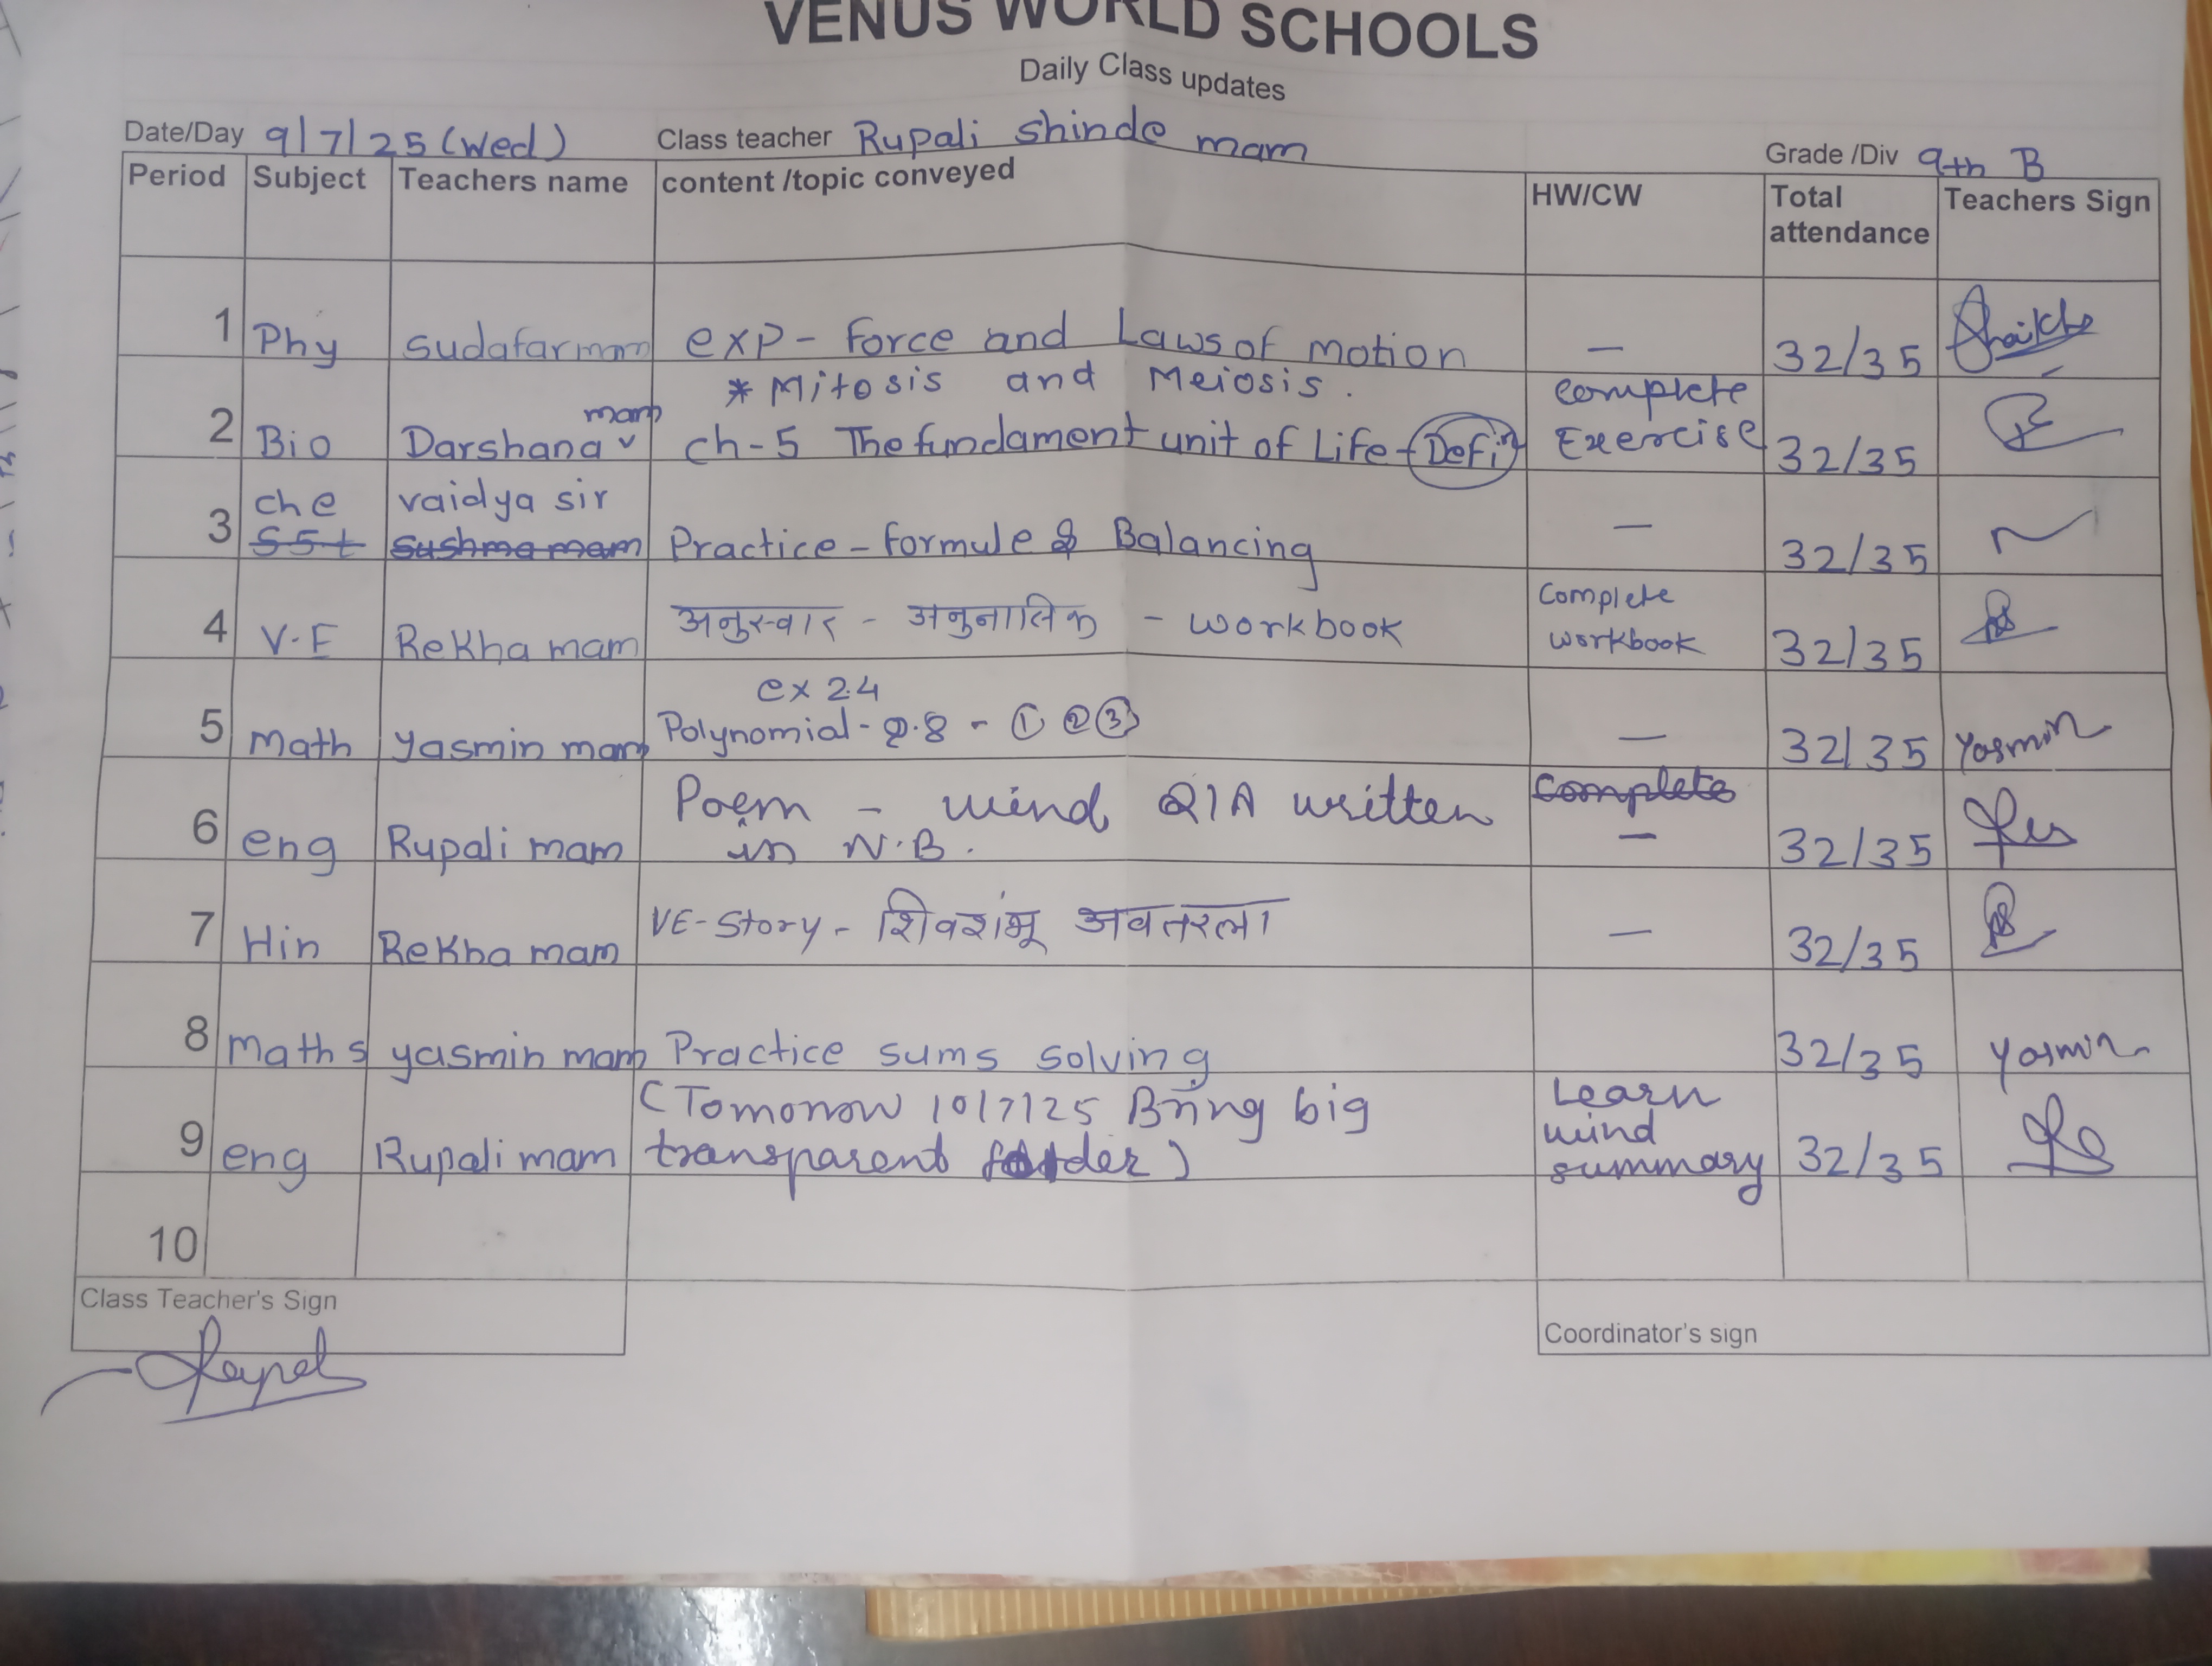 VENUS WORLD SCHOOLS
Daily Class updates
Date/Day 9/7/25 (Wed) Class teacher Rupali Shinde mam Grade /Div 9th B
Period Subject Teachers name content /topic conveyed HW/CW Total attendance Teachers Sign
1 Phy sudafar mam exp - force and Laws of motion — 32/35 Shaikh
* Mitosis and Meiosis.
2 Bio Darshana mam ch-5 The fundament unit of Life - Defin complete Exercise 32/35
3 che vaidya sir
SSt sushma mam Practice - formule & Balancing — 32/35
4 V.E Rekha mam अनुस्वार - अनुनासिक - workbook Complete workbook 32/35
ex 2.4
5 Math yasmin mam Polynomial - Q.8 - ① ② ③ — 32/35 Yasmin
6 eng Rupali mam Poem - wind Q/A written complete
in N.B. — 32/35
7 Hin Rekha mam VE-Story - शिवशंभू अवतरला — 32/35
8 Maths yasmin mam Practice sums solving 32/35 Yasmin
9 eng Rupali mam (Tomorrow 10/7/25 Bring big
transparent folder) Learn wind summary 32/35
10
Class Teacher's Sign
Coordinator's sign